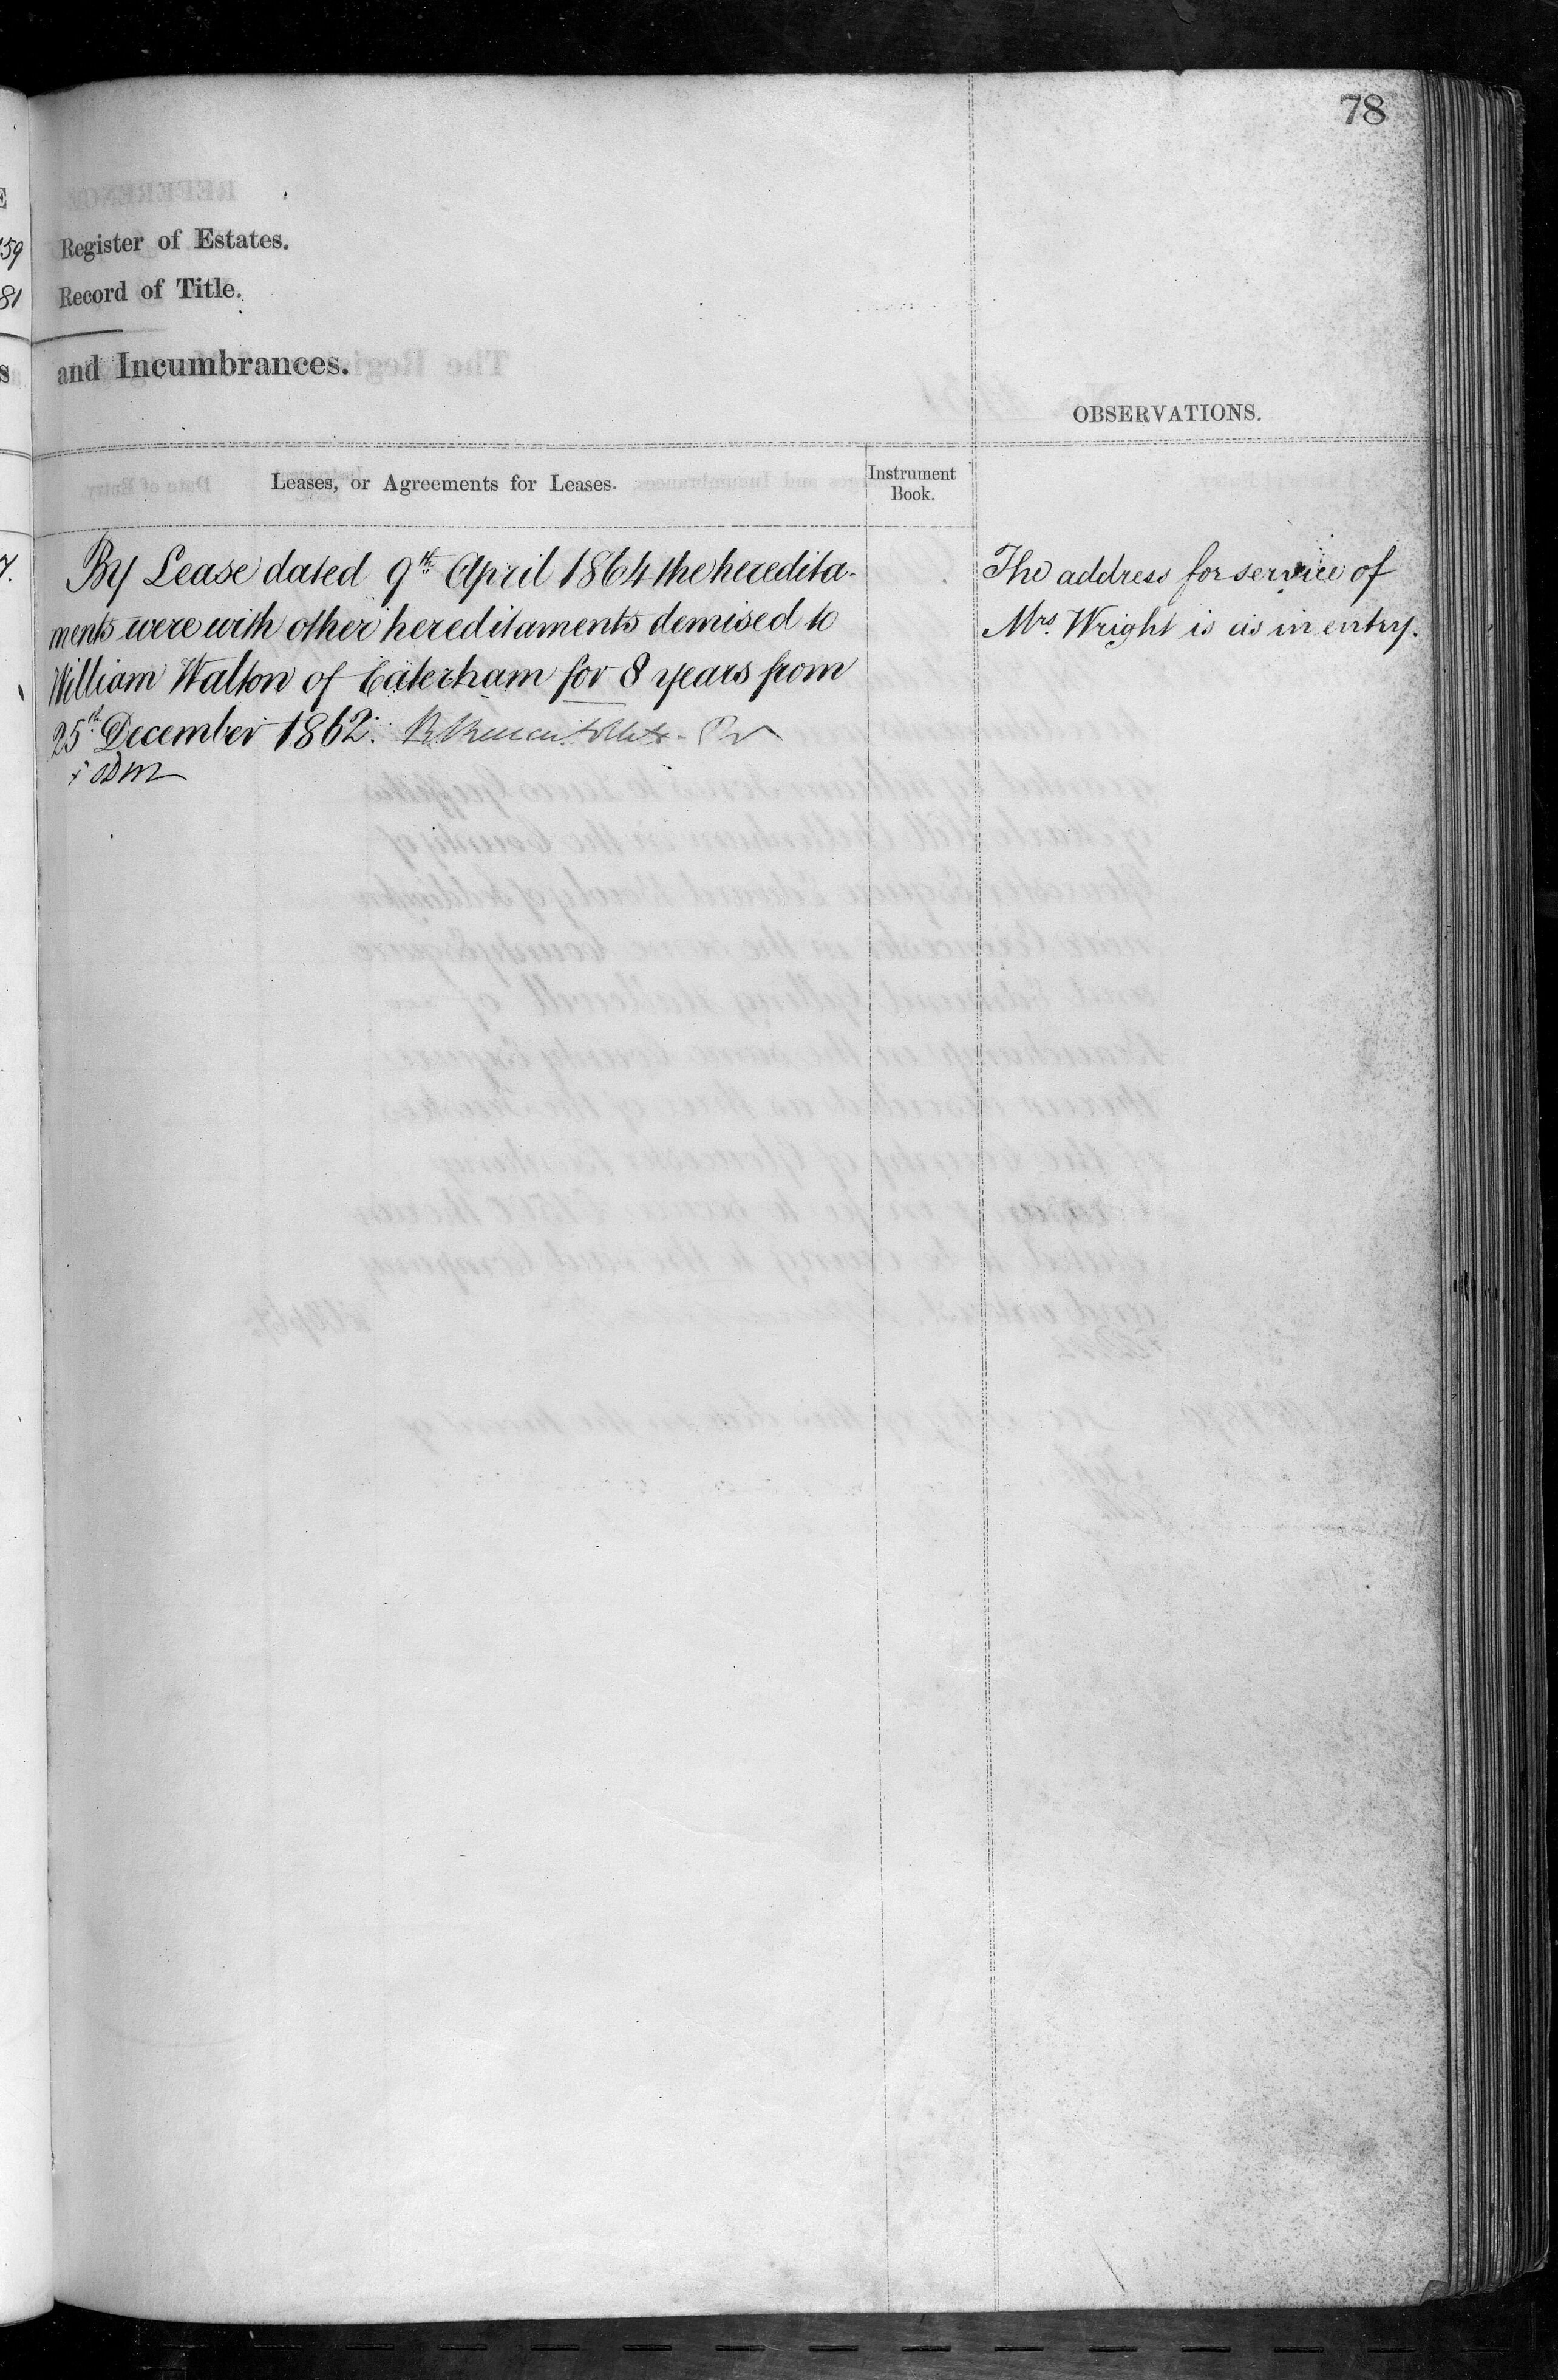 78
59
81
Register of Estates.
Record of Title.
and Incumbrances.
OBSERVATIONS.
Leases, or Agreements for Leases.
Instrument
Book.
By Lease dated 9th April 1864 the heredita-
ments were with other hereditaments demised to
William Walton of Caterham for 8 years from
25th December 1862.
The address for service of
Mrs. Wright is as in entry.